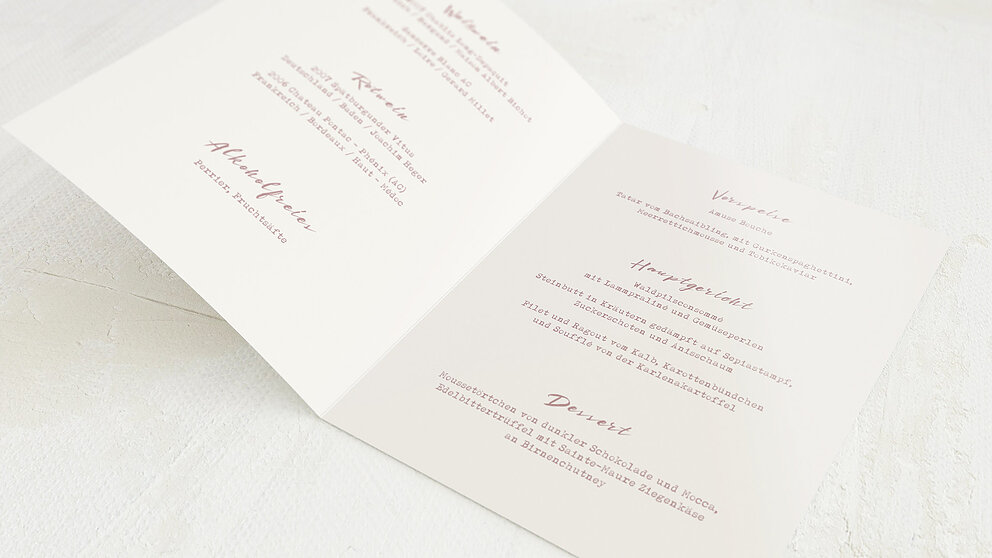 Weißwein
Chablis Long-Depaquit
Frankreich / Burgund / Maison Albert Bichot
Sancerre Blanc AC
Frankreich / Loire / Gerard Millet
Rotwein
2007 Spätburgunder Vitus
Deutschland / Baden / Joachim Heger
2006 Chateau Pontac - Phénix (AC)
Frankreich / Bordeaux / Haut - Médoc
Alkoholfreies
Perrier, Fruchtsäfte
Vorspeise
Amuse Bouche
Tatar vom Bachsaibling, mit Gurkenspaghettini,
Meerrettichmousse und Tobikokaviar
Hauptgericht
Waldpilsconsommé
mit Lammpraliné und Gemüseperlen
Steinbutt in Kräutern gedämpft auf Sepiastampf,
Zuckerschoten und Anisschaum
Filet und Ragout vom Kalb, Karottenbündchen
und Soufflé von der Karlenakartoffel
Dessert
Moussetörtchen von dunkler Schokolade und Mocca,
Edelbittertrüffel mit Sainte-Maure Ziegenkäse
an Birnenchutney